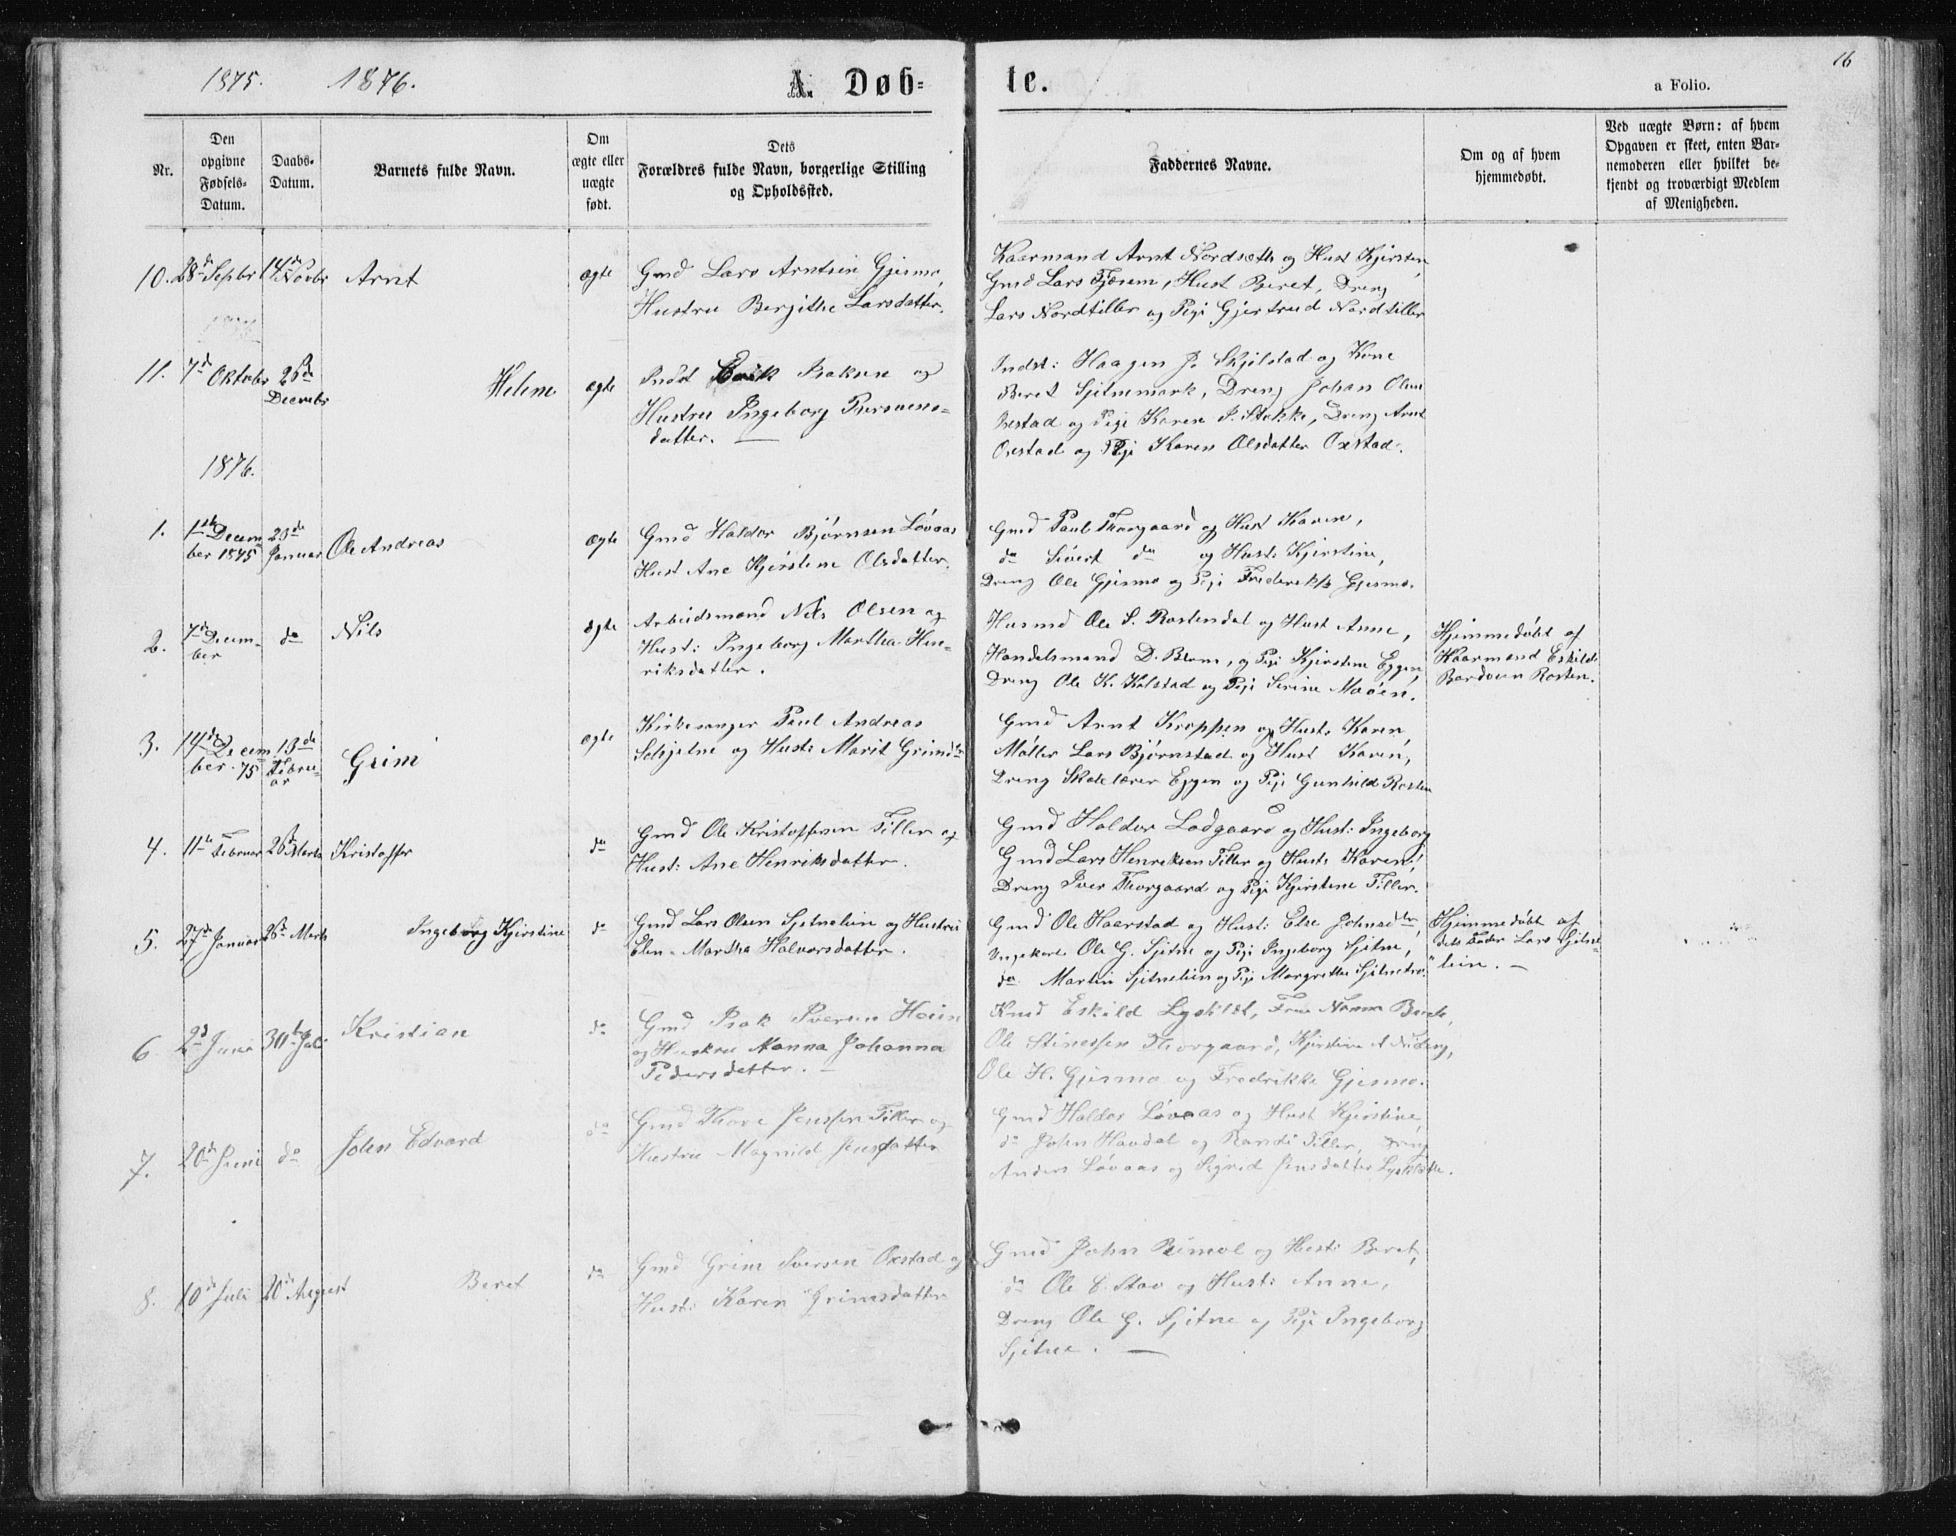 1875. 1876. A. Døb-
te.
16
a Folio.
Nr.
Den
opgivne
Fødsels-
Datum.
Daabs-
Datum.
Barnets fulde Navn.
Om
ægte eller
uægte
født.
Dets
Forældres fulde Navn, borgerlige Stilling
og Opholdssted.
Faddernes Navne.
Om og af hvem
hjemmedøbt.
Ved uægte Børn: af hvem
Opgaven er skeet, enten Bar-
nemoderen eller hvilket be-
kjendt og troværdigt Medlem
af Menigheden.
10. 28de Sepbr 14de Novbr Arnt ægte
Gmd Lars Arntsen Gjesmo,
Hustru Bergithe Larsdatter.
Kaarmand Arnt Nordsæth og Hust Kjirsten,
Gmd Lars Fjærem, Hust Beret, Dreng
Lars Nordtiller og Pige Gjertrud Nordtiller
11. 7de Oktober 26de
Decmbr
Helene ægte
Indst Erik Isaksen og
Hustru Ingeborg Iversens-
datter.
Indst: Haagen J. Skjilstad og Kone
Beret Sjitnemark, Dreng Johan Olsen
Oxstad og Pige Karen S. Stokke, Dreng Arnt
Oxstad og Pige Karen Olsdatter Oxstad.
1876.
1. 1ste Decem-
ber 1875
23de
Januar
Ole Andreas ægte
Gmd Haldor Bjørnsen Løvaas
Hust Ane Kjirstine Olsdatter.
Gmd Paul Thorgaard og Hust Karen,
do Sivert do og Hust: Kjerstine,
Dreng Ole Gjesmo og Pige Frederikke Gjesmo.
2. 7de Decem-
ber
do Nils ægte
Arbeidsmand Nils Olsen og
Hust: Ingeborg Martha Hen-
riksdatter.
Husmd Ole S. Rostendal og Hust Anne,
Handelsmand D. Blom, og Pige Kjerstine Eggen,
Dreng Ole K. Kolstad og Pige Serine Moøen.
Hjemmedøbt af
Kaarmand Eskild
Bardosen Rosten.
3. 14de Decem-
ber. 75
13de
Febru-
ar
Grim ægte
Kirkesanger Paul Andreas
Selsjetne og Hust: Marit Grimsdtr
Gmd Arnt Kroppen og Hust: Karen,
Møller Lars Bjørnstad og Hust Karen,
Dreng Skolelærer Eggen og Pige Gunhild Rosten
4. 11te Februar 26de Marts Kristoffer do
Gmd Ole Kristoffersen Tiller og
Hust: Ane Henriksdatter.
Gmd Haldor Lodgaard og Hust: Ingeborg
Gmd Lars Henriksen Tiller og Hust: Karen,
Dreng Iver Thorgaard og Pige Kjirstine Tiller.
5. 27de Januar 26de Marts Ingeborg Kjirstine do
Gmd Lars Olsen Sjitnelien og Hustru
Elen Martha Halvorsdatter.
Gmd Ole Haarstad og Hust: Else Johnsdtr,
Ungekarl Ole G. Sjitne og Pige Ingeborg Sjitne,
do Martin Sjitnelien og Pige Margrethe Sjitnetrø.
Hjemmedøbt af
dets Fader Lars Sjitne-
lien.
6. 2de Juni 30te Juli Kristian do
Gmd Isak Iversen Heien
og Hustru Nanna Johanna
Pedersdatter.
Gmd Eskild Lysklæt, Fru Nanna Buck,
Ole Stinessen Thorgaard, Kjerstine A
Ole H. Gjesmo og Fredrikke Gjesmo.
7. 20de Juni do John Edvard do
Gmd Thore Jenssen Tiller og
Hustru Magnild Jensdatter
Gmd Haldor Løvaas og Hust Kjerstine,
do John Havdal og Randi Tiller, Dreng
Anders Løvaas og Sigrid Jensdatter Lysklætte.
8. 10de Juli 20de August Beret do
Gmd Grim Iversen Oxstad og
Hust: Karen Grimsdatter
Gmd John Rimol og Hust: Beret,
do Ole E. Stav og Hust: Anne,
Dreng Ole G. Sjitne og Pige Ingeborg
Sjitne.